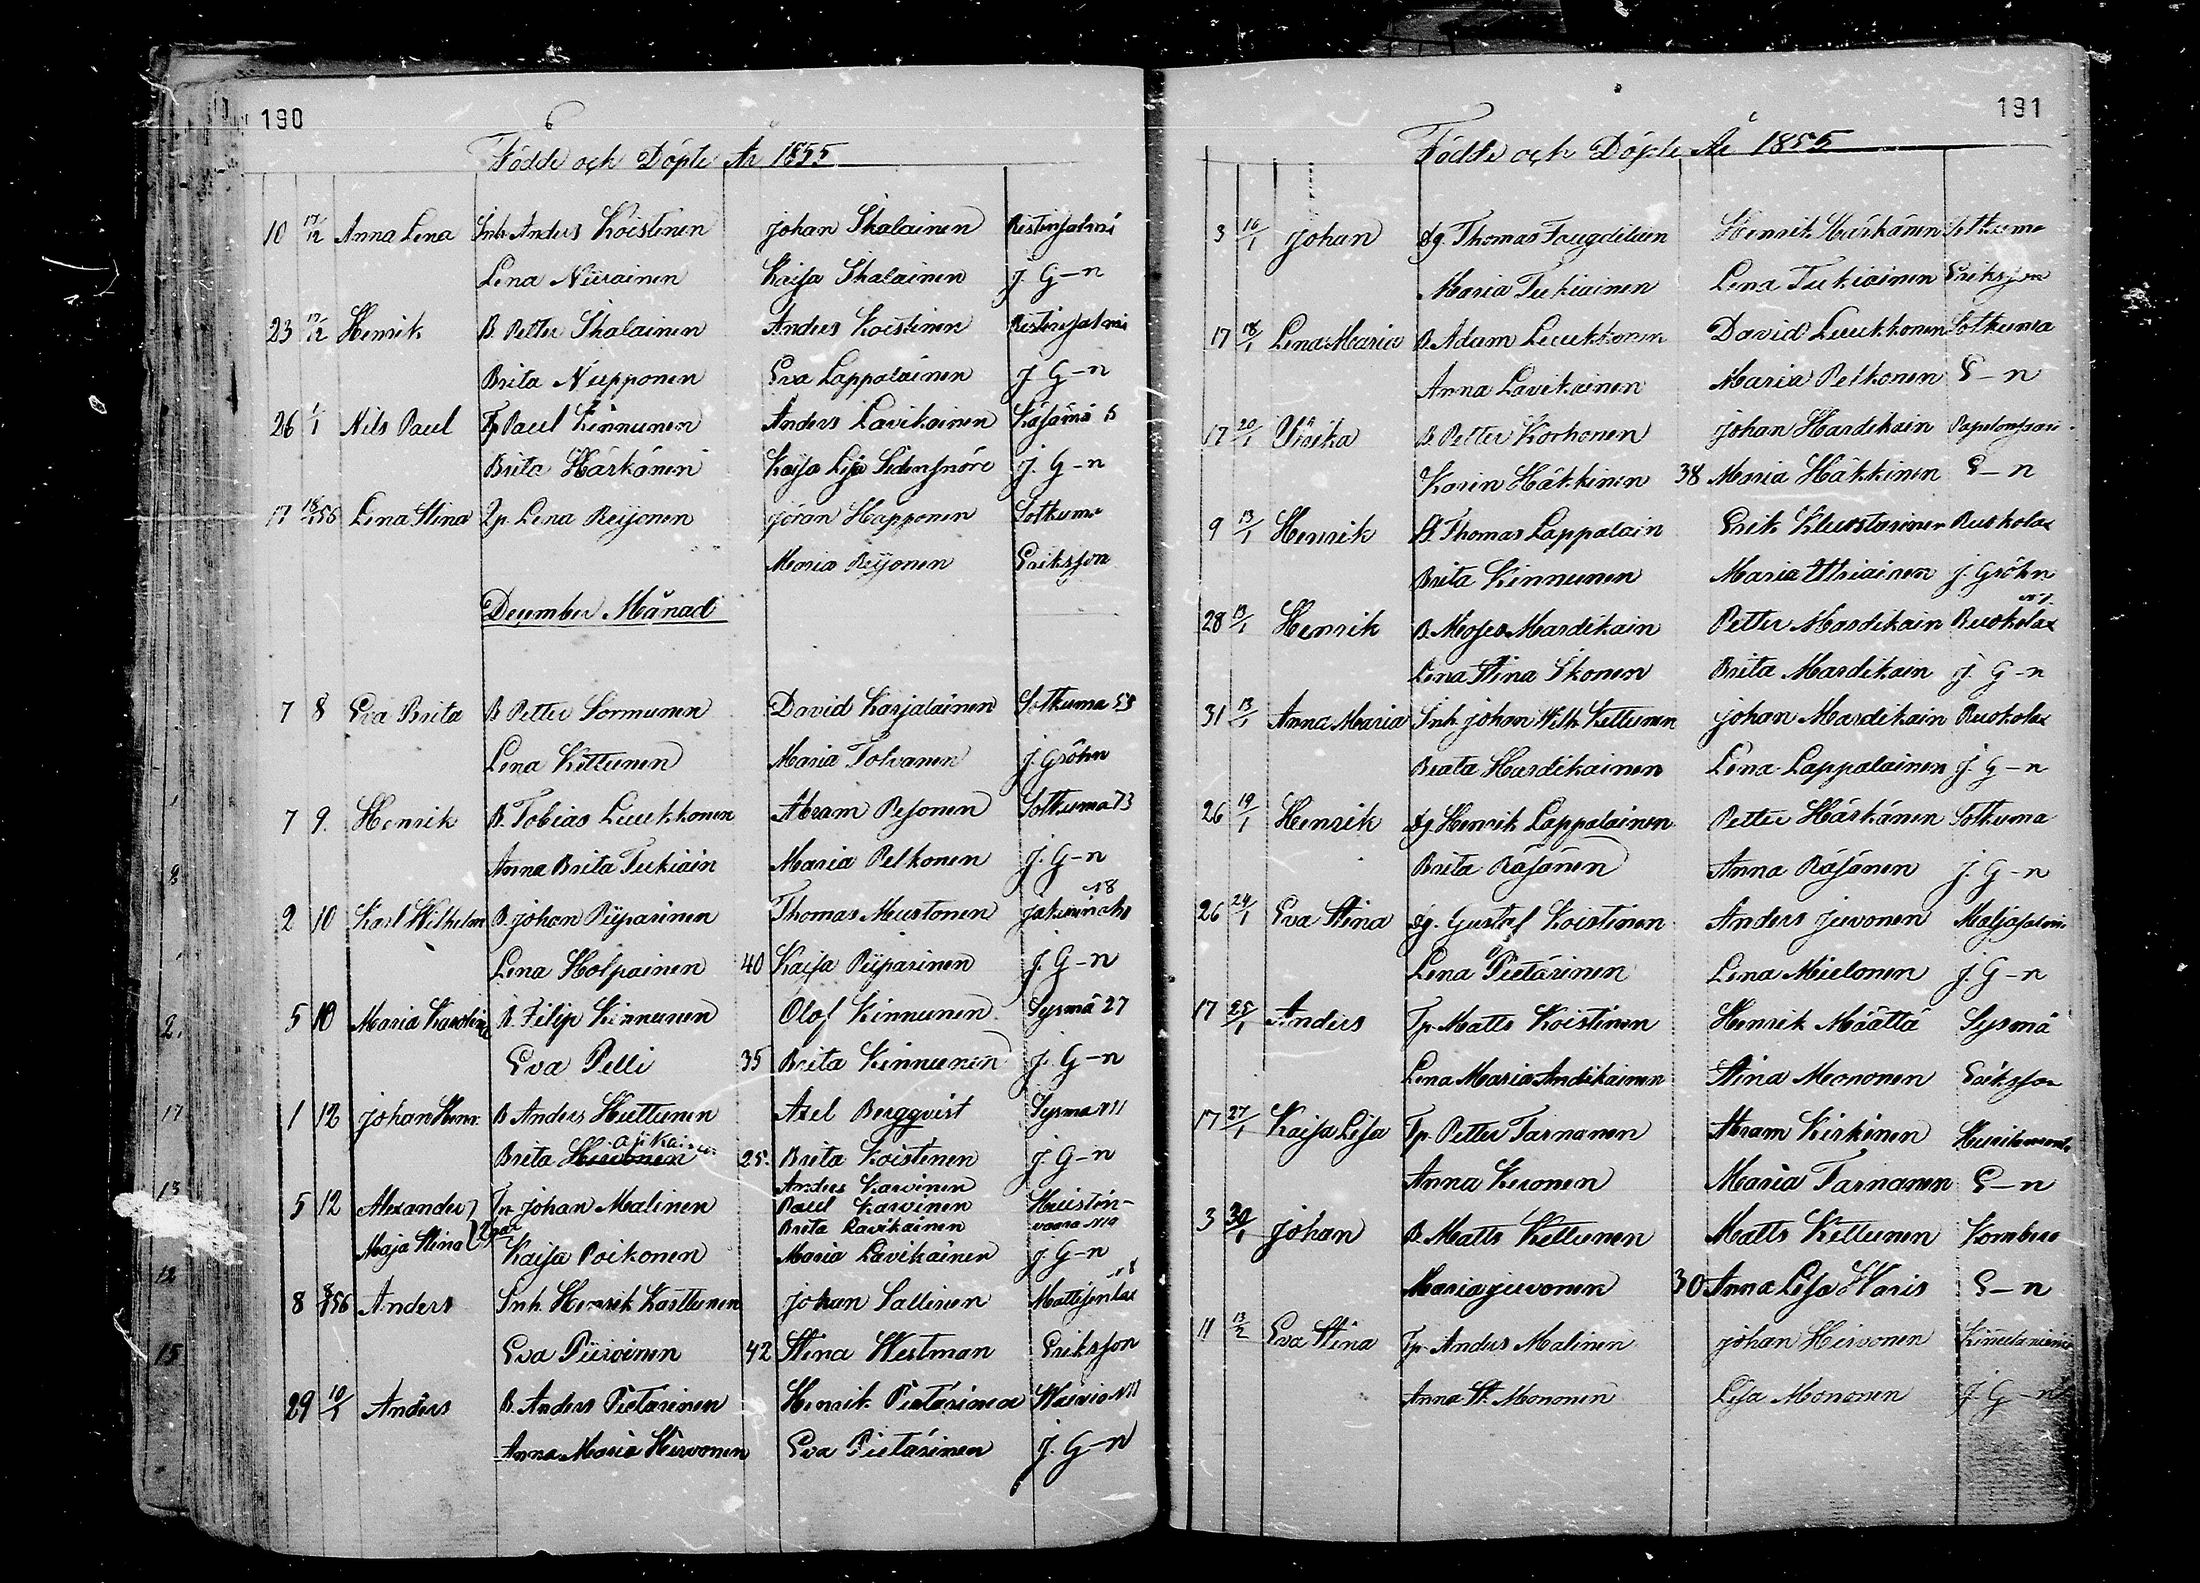 190
Födde och Döpte År 1855
10 17/12 Anna Lena Inh. Anders Koistinen Johan Ikalainen Ristinsalmi
Lena Niiranen Kaisa Ikalainen J. G-n
23 17/12 Henrik B. Petter Ikalainen Anders Koistinen Ristinsalmi
Brita Nupponen Eva Lappalainen J G-n
26 1/1 Nils Paul Tp Paul Kinnunen Anders Lavikainen Käsämä 5
Brita Härkönen Kaisa Lisa Sedensnöre J. G-n
17 56 Lena Stina Lena Reijonen Jöran Happonen Sotkuma
Maria Reijonen Eriksson
December Månad
7 8 Eva Brita B Petter Sormunen David Karjalainen Sotkuma 53
Lena Kettunen Maria Tolvanen J. Gröhn
7 9. Henrik B. Tobias Luukkonen Abram Pesonen Sotkuma 73
Anna Brita Tukiain Maria Pelkonen J. G-n
2 10 Karl Wilhelm B. Johan Piiparinen Thomas Mustonen N8
Lena Holpainen 40 Kaisa Piiparinen J. G-n
5 10 Maria Karolina B. Filip Kinnunen Olof Kinnunen Sysmä 27
Eva Pelli 35 Brita Kinnunen J. G-n
1 12 Johan Henr. B Anders Huttunen Axel Bergqvist Sysmä N11
Brita 25. Brita Koistinen J. G-n
Anders Karvinen
5 12 Alexander Johan Malinen Paul Karvinen Mustin-
Brita Ravikainen vaara N10
Maja Stina Kaisa Poikonen Maria Lavikainen J G-n
8 8/1 56 Anders Inh. Henrik Karttunen Johan Sallinen Mattisenlax N8
Eva Piiroinen 42 Stina Westman Eriksson
29 10/1 Anders B. Anders Pietarinen Henrik Pietarinen Waivio N11
Anna Maria Hirvonen Eva Pietarinen J. G-n
191
Födde och Döpte År 1855
3 16/1 Johan Thomas Faugdelin Henrik Härkönen Sotkuma
Maria Tukiainen Lena Tukiainen Eriksson
17 18/1 Lena Maria B. Adam Luukkonen David Luukkonen Sotkuma
Anna Lavikainen Maria Pelkonen E-n
17 20/1 Ulrika B. Petter Korhonen Johan Hardikain
Karin Häkkinen 38 Maria Häkkinen E-n
9 13/1 Henrik B. Thomas Lappalain Erik Kuostarinen Ruokolax
Brita Kinnunen Maria Utriainen J. Gröhn
28 13/1 Henrik B. Moses Mardikain Petter Mardikain Ruokolax
Lena Stina Ikonen Brita Mardikain J. G-n
31 13/1 Anna Maria Inh. Johan Wilh Kettunen Johan Mardikain Ruokolax
Beata Hardikainen Lena Lappalainen J. G-n
26 19/1 Henrik Henrik Lappalainen Petter Härkönen Sotkuma
Brita Räsänen Anna Räsänen J. G-n
26 24/1 Eva Stina Gustaf Koistinen Anders Juvonen Maljasalmi
Lena Pietarinen Lena Mielonen J. G-n
17 25/1 Anders Tp. Matts Koistinen Henrik Määttä Sysmä
Lena Maria Andikainen Stina Mononen Eriksson
17 27/1 Kaisa Lisa Tp. Petter Tarnanen Abram Kirkinen
Anna Kuronen Maria Tarnanen E-n
3 30/1 Johan B. Matts Kettunen Matts Kettunen Komberi
Maria Juvonen 30 Anna Lisa Waris E-n
11 13/2 Eva Stina Tp. Anders Malinen Johan Hirvonen
Anna St. Mononen Lisa Mononen J. G-n